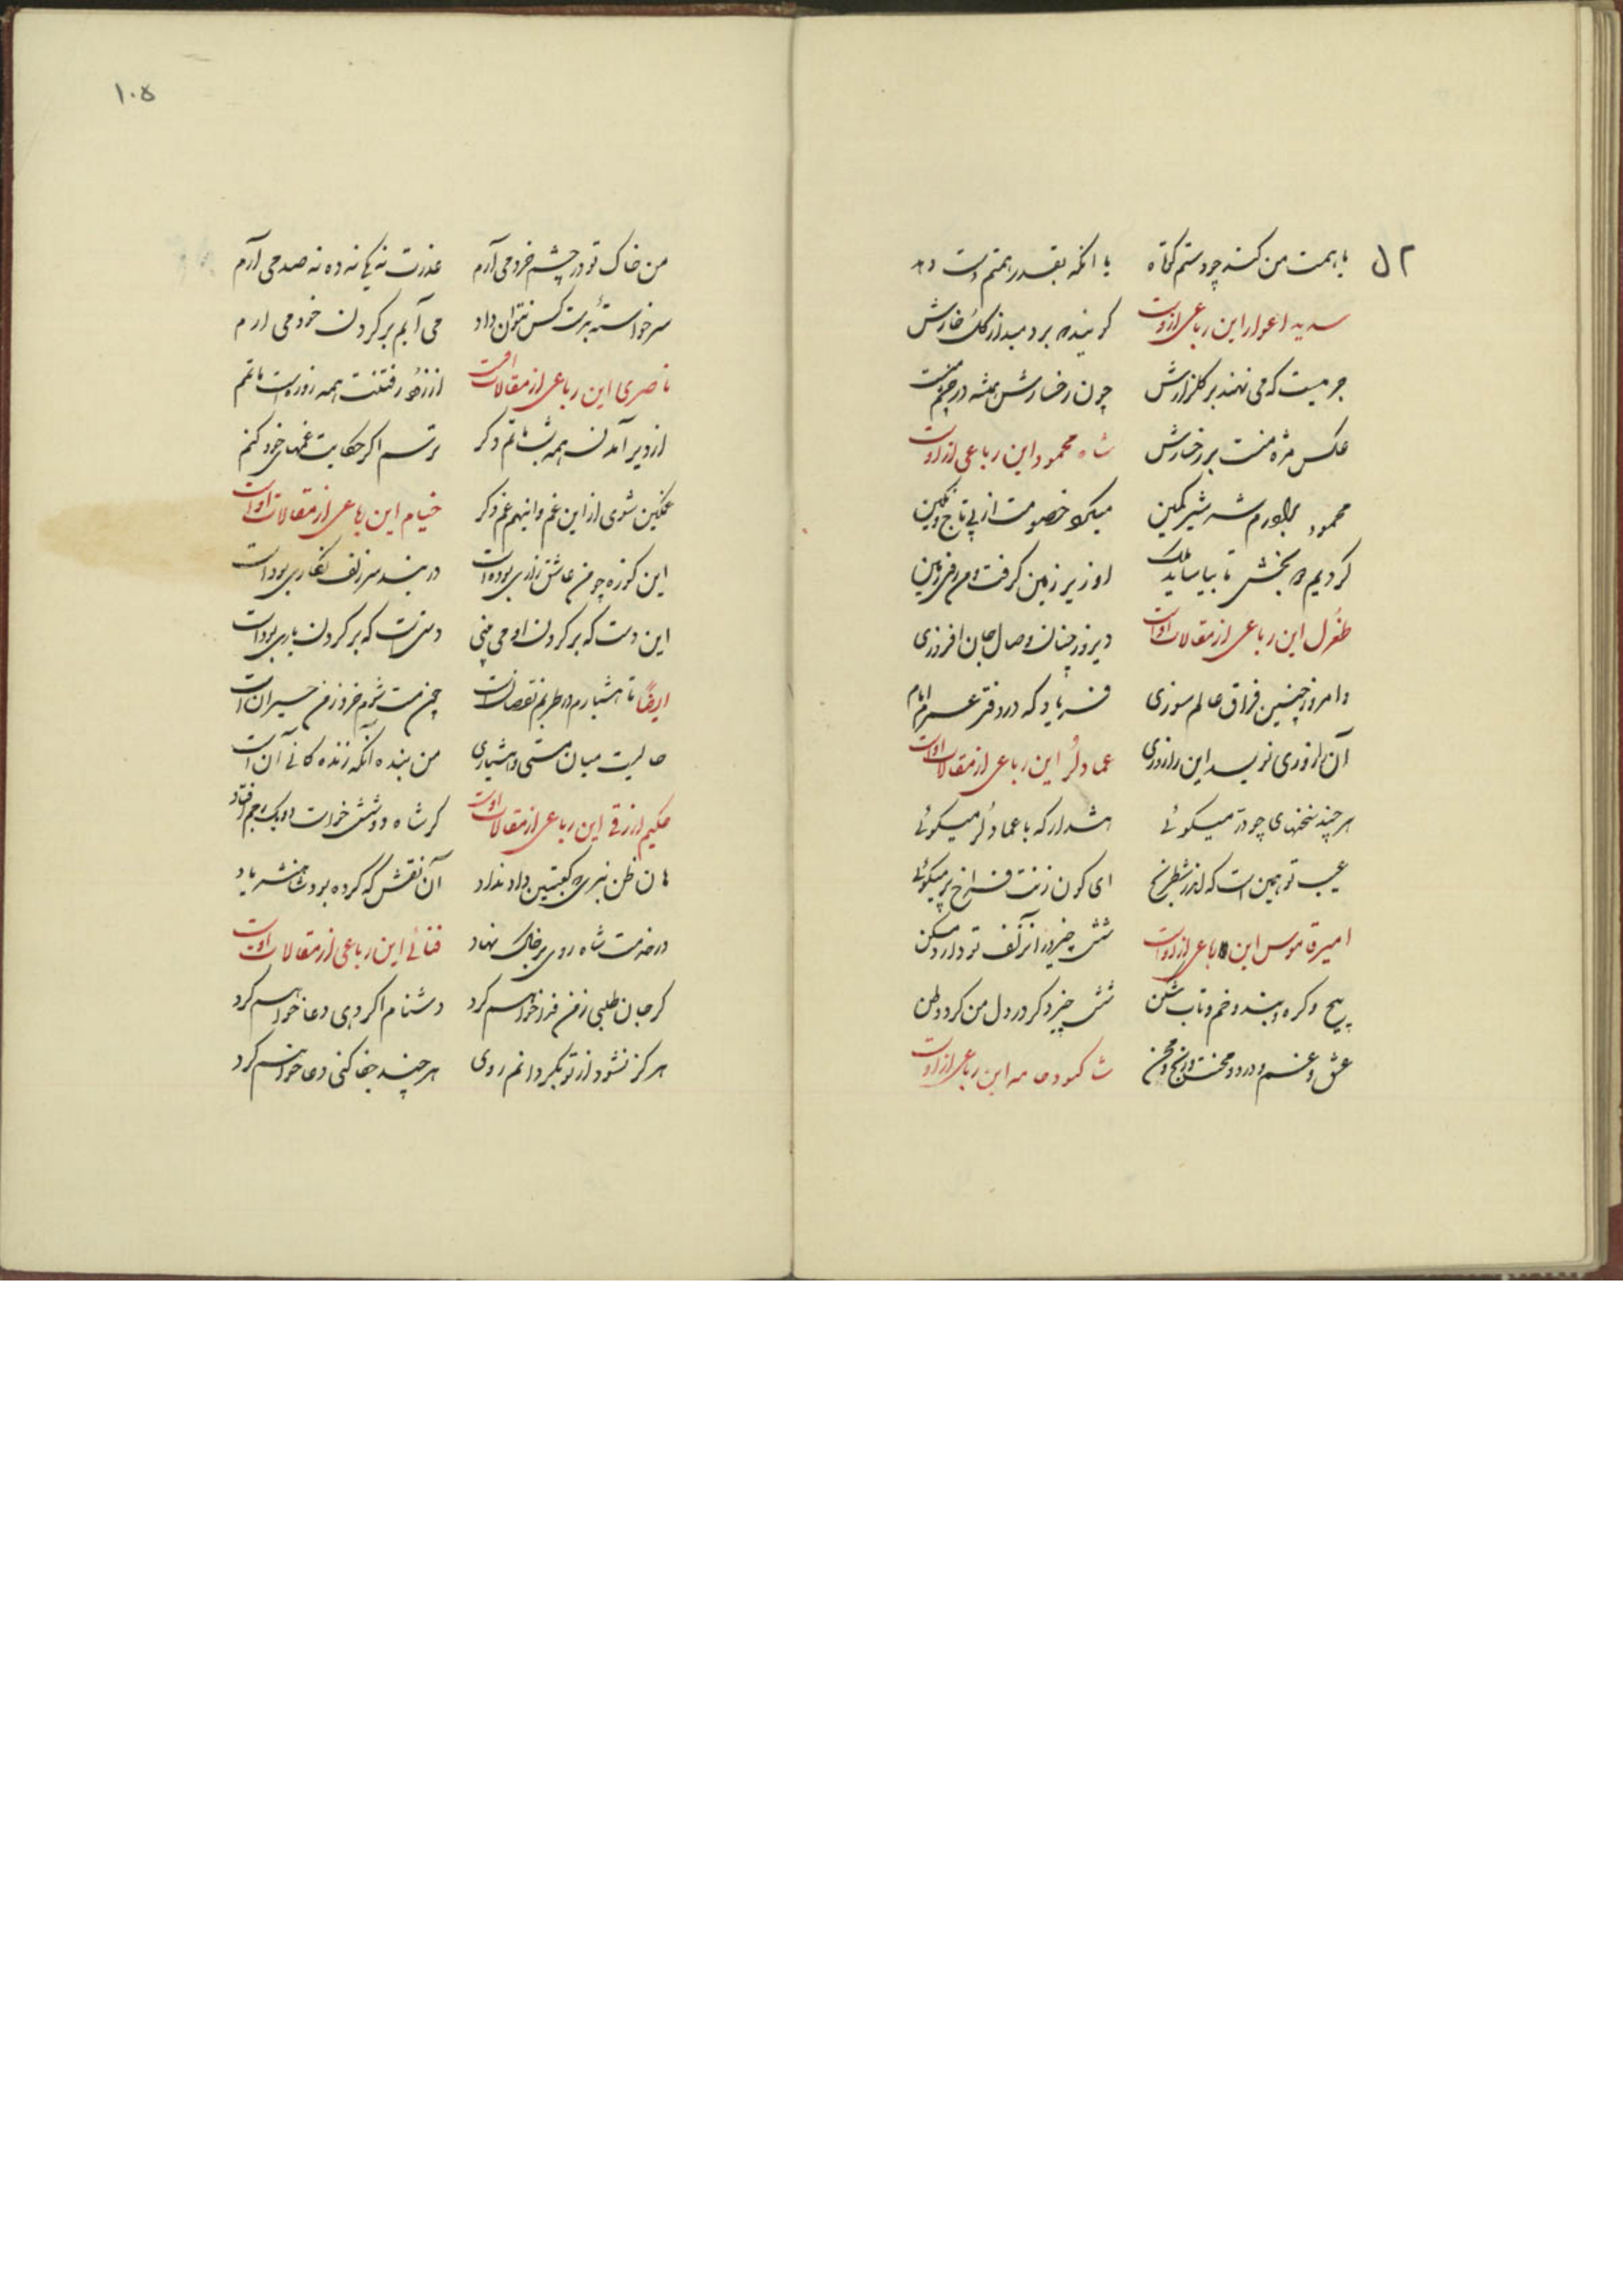 با همت من کند چو دستم کوتاه    یا آنکه بقدر همتم دست دهد
سدید اعوار این رباعی از اوست    گویند بردمید از گل خارش
جرمیست که می نهند بر گلزارش    چون رخسارش همیشه در چشم منست
عکس مژه منست بر رخسارش    شاه محمود این رباعی از اوست
محمود برادرم شه شیر کمین    میکرد خصومت از پی تاج و نگین
کردیم دو بخش تا بیاساید ملک    او زیر زمین گرفت و من روی زمین
طغرل این رباعی از مقالات اوست    دیروز چنان وصال جان افروزی
و امروز چنین فراق عالم سوزی    فریاد که در دفتر عمرم ایام
آن را روزی نویسد این را روزی    عماد لر این رباعی از مقالات اوست
هر چند سخنهای چو در میگوئی    هشدار که با عماد لر میگوئی
عیب تو همین است که اندر شطرنج    ای کون زنت فراخ پر میگوئی
امیر قاموس این رباعی از اوست    شش چیز در آن زلف تو دارد مسکن
پیچ و گره و بند و خم و تاب و شکن    شش چیز دگر در دل من کرد وطن
عشق و غم و درد و محنت و رنج و محن    شاکمود عامه این رباعی از اوست
۱۰۵
من خاک تو در چشم خرد می آرم    عذرت نه یکی نه ده نه صد می آرم
سر خواسته بدست کس نتوان داد    می آیم بر گردن خود می آرم
ناصری این رباعی از مقالات اوست    از زود رفتنت همه روز است ماتمم
از دیر آمدن همه شب ماتم دگر    ترسم اگر حکایت غمهای خود کنم
غمگین شوی از این غم و اینهم غم دگر    خیام این رباعی از مقالات اوست
این کوزه چو من عاشق زاری بوده است    در بند سر زلف نگاری بود است
این دست که بر گردن او می بینی    دستیست که بر گردن یاری بود است
ایضاً تا هشیارم در طربم نقصانست    چون مست شوم خرد ز من حیرانست
حالیست میان مستی و هشیاری    من بنده آنکه زندگانی آن است
حکیم ازرقی این رباعی از مقالات اوست    گر شاه دو شش خواست دو یک زخم افتاد
هان ظن نبری که کعبتین داد نداد    آن نقش که کرده بود شاهنشه یاد
در خدمت شاه روی بر خاک نهاد    فنائی این رباعی از مقالات اوست
گر جان طلبی ز من فدا خواهم کرد    دشنام اگر دهی دعا خواهم کرد
هرگز نشود از تو بگردانم روی    هر چند جفا کنی دعا خواهم کرد